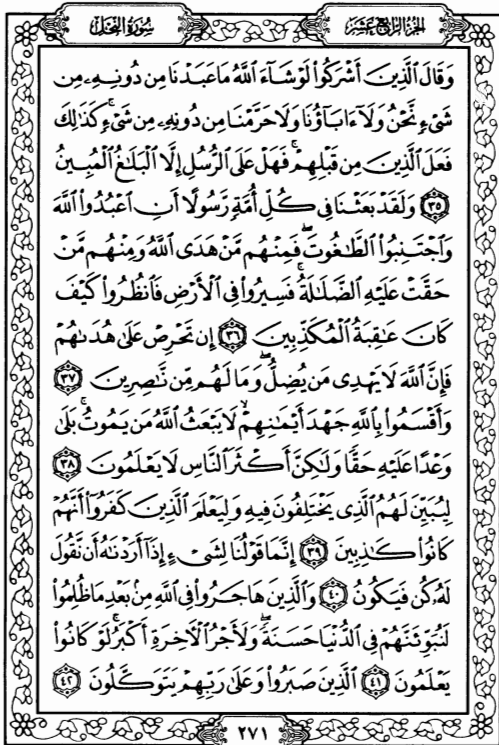 سُورَةُ النَّحْلِ
الجُزْءُ الرَّابِعَ عَشَرَ
وَقَالَ الَّذِينَ أَشْرَكُوا۟ لَوْ شَآءَ ٱللَّهُ مَا عَبَدْنَا مِن دُونِهِۦ مِن
شَىْءٍ نَّحْنُ وَلَآ ءَابَآؤُنَا وَلَا حَرَّمْنَا مِن دُونِهِۦ مِن شَىْءٍ ۚ كَذَٰلِكَ
فَعَلَ ٱلَّذِينَ مِن قَبْلِهِمْ ۚ فَهَلْ عَلَى ٱلرُّسُلِ إِلَّا ٱلْبَلَٰغُ ٱلْمُبِينُ
٣٥ وَلَقَدْ بَعَثْنَا فِى كُلِّ أُمَّةٍ رَّسُولًا أَنِ ٱعْبُدُوا۟ ٱللَّهَ
وَٱجْتَنِبُوا۟ ٱلطَّٰغُوتَ ۖ فَمِنْهُم مَّنْ هَدَى ٱللَّهُ وَمِنْهُم مَّنْ
حَقَّتْ عَلَيْهِ ٱلضَّلَٰلَةُ ۚ فَسِيرُوا۟ فِى ٱلْأَرْضِ فَٱنظُرُوا۟ كَيْفَ
كَانَ عَٰقِبَةُ ٱلْمُكَذِّبِينَ ٣٦ إِن تَحْرِصْ عَلَىٰ هُدَىٰهُمْ
فَإِنَّ ٱللَّهَ لَا يَهْدِى مَن يُضِلُّ ۖ وَمَا لَهُم مِّن نَّٰصِرِينَ ٣٧
وَأَقْسَمُوا۟ بِٱللَّهِ جَهْدَ أَيْمَٰنِهِمْ ۙ لَا يَبْعَثُ ٱللَّهُ مَن يَمُوتُ ۚ بَلَىٰ
وَعْدًا عَلَيْهِ حَقًّا وَلَٰكِنَّ أَكْثَرَ ٱلنَّاسِ لَا يَعْلَمُونَ ٣٨
لِيُبَيِّنَ لَهُمُ ٱلَّذِى يَخْتَلِفُونَ فِيهِ وَلِيَعْلَمَ ٱلَّذِينَ كَفَرُوٓا۟ أَنَّهُمْ
كَانُوا۟ كَٰذِبِينَ ٣٩ إِنَّمَا قَوْلُنَا لِشَىْءٍ إِذَآ أَرَدْنَٰهُ أَن نَّقُولَ
لَهُۥ كُن فَيَكُونُ ٤٠ وَٱلَّذِينَ هَاجَرُوا۟ فِى ٱللَّهِ مِنۢ بَعْدِ مَا ظُلِمُوا۟
لَنُبَوِّئَنَّهُمْ فِى ٱلدُّنْيَا حَسَنَةً ۖ وَلَأَجْرُ ٱلْءَاخِرَةِ أَكْبَرُ ۚ لَوْ كَانُوا۟
يَعْلَمُونَ ٤١ ٱلَّذِينَ صَبَرُوا۟ وَعَلَىٰ رَبِّهِمْ يَتَوَكَّلُونَ ٤٢
٢٧١